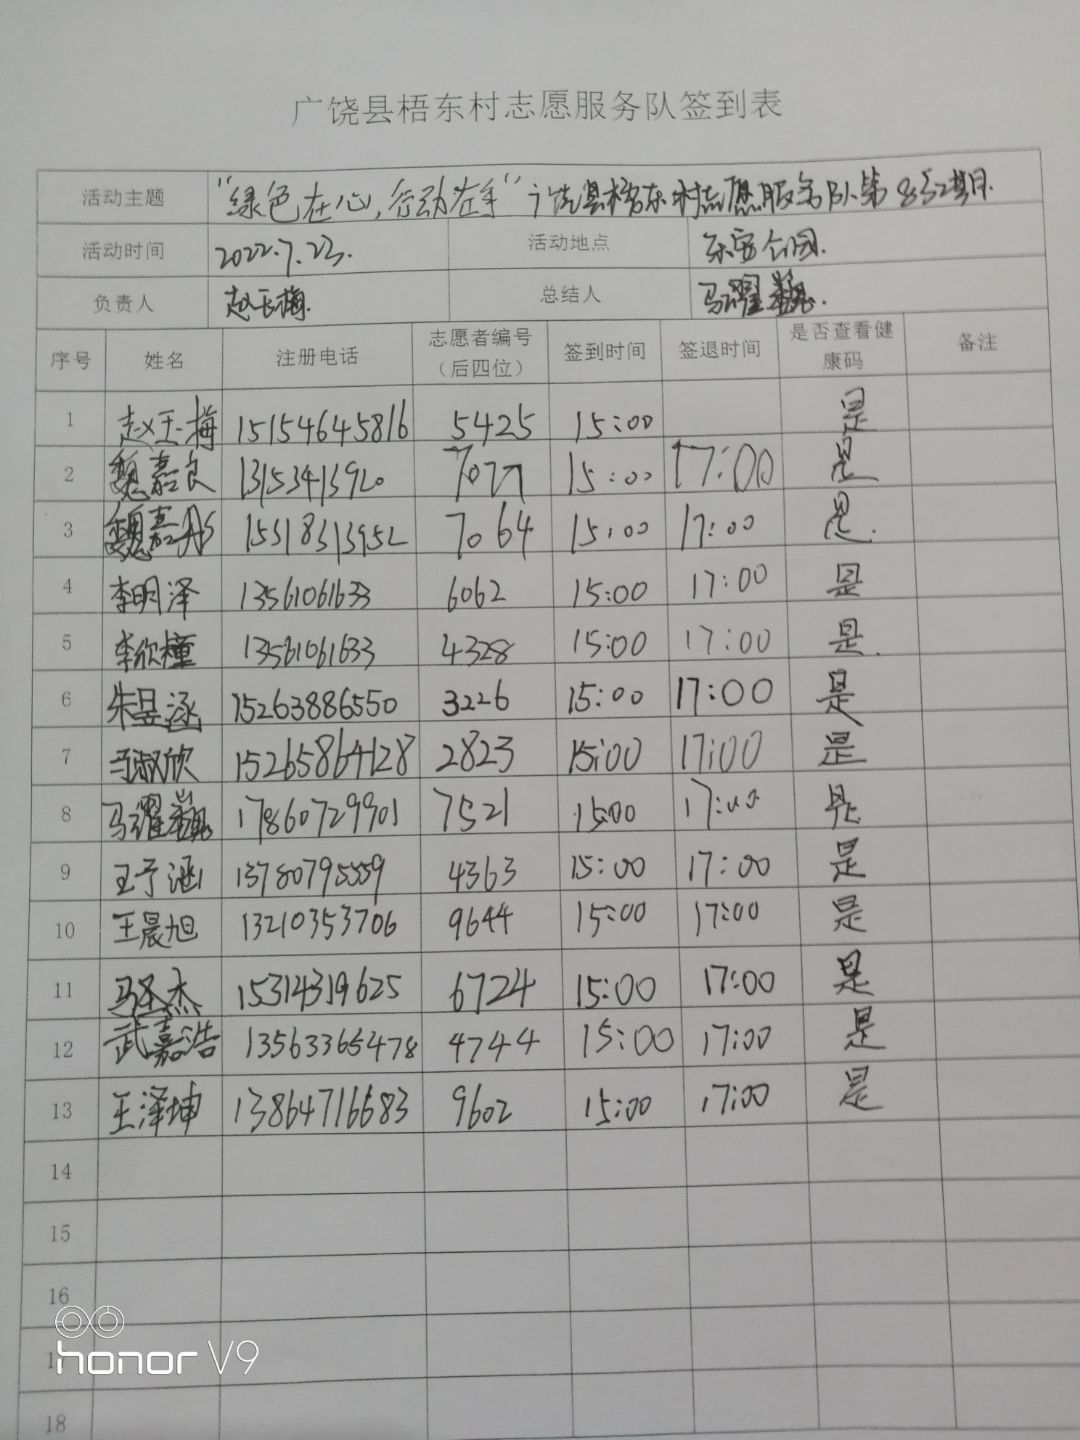 广饶县梧东村志愿服务队签到表
活动主题 "绿色在心,行动在手"广饶县梧东村志愿服务队第 期
活动时间 2022.7.23. 活动地点 乐安公园.
负责人 赵玉梅. 总结人 马耀巍.
序号 姓名 注册电话 志愿者编号(后四位) 签到时间 签退时间 是否查看健康码 备注
1 赵玉梅 15154645816 5425 15:00 是
2 魏嘉良 15:00 17:00 是
3 魏嘉彤 7064 15:00 17:00 是.
4 李明泽 13561061633 6062 15:00 17:00 是
5 李欣橦 13561061633 4328 15:00 17:00 是.
6 朱昱涵 15263886550 3226 15:00 17:00 是
7 马淑欣 15265864128 2823 15:00 17:00 是
8 马耀巍 17860729901 7521 15:00 17:00 是
9 王予涵 13780795559 4363 15:00 17:00 是
10 王晨旭 13210353706 9644 15:00 17:00 是
11 马圣杰 15314319625 6724 15:00 17:00 是
12 武嘉浩 13563365478 4744 15:00 17:00 是
13 王泽坤 13864716683 9602 15:00 17:00 是
14
15
16
18
honor V9